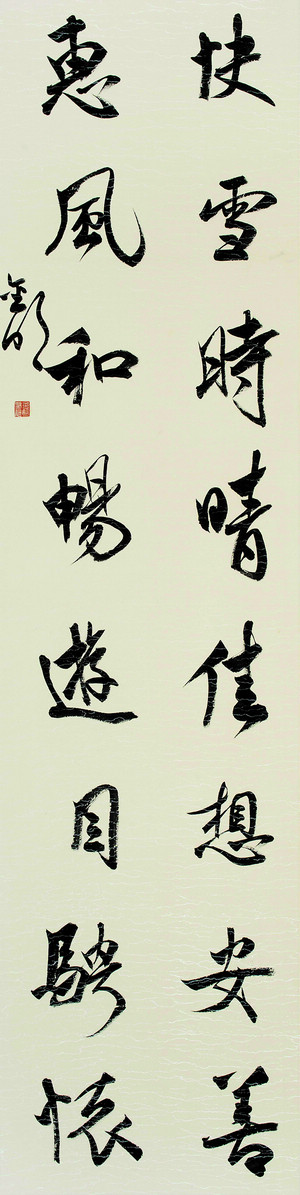 快雪時晴佳想安善
惠風和暢遊目騁懐